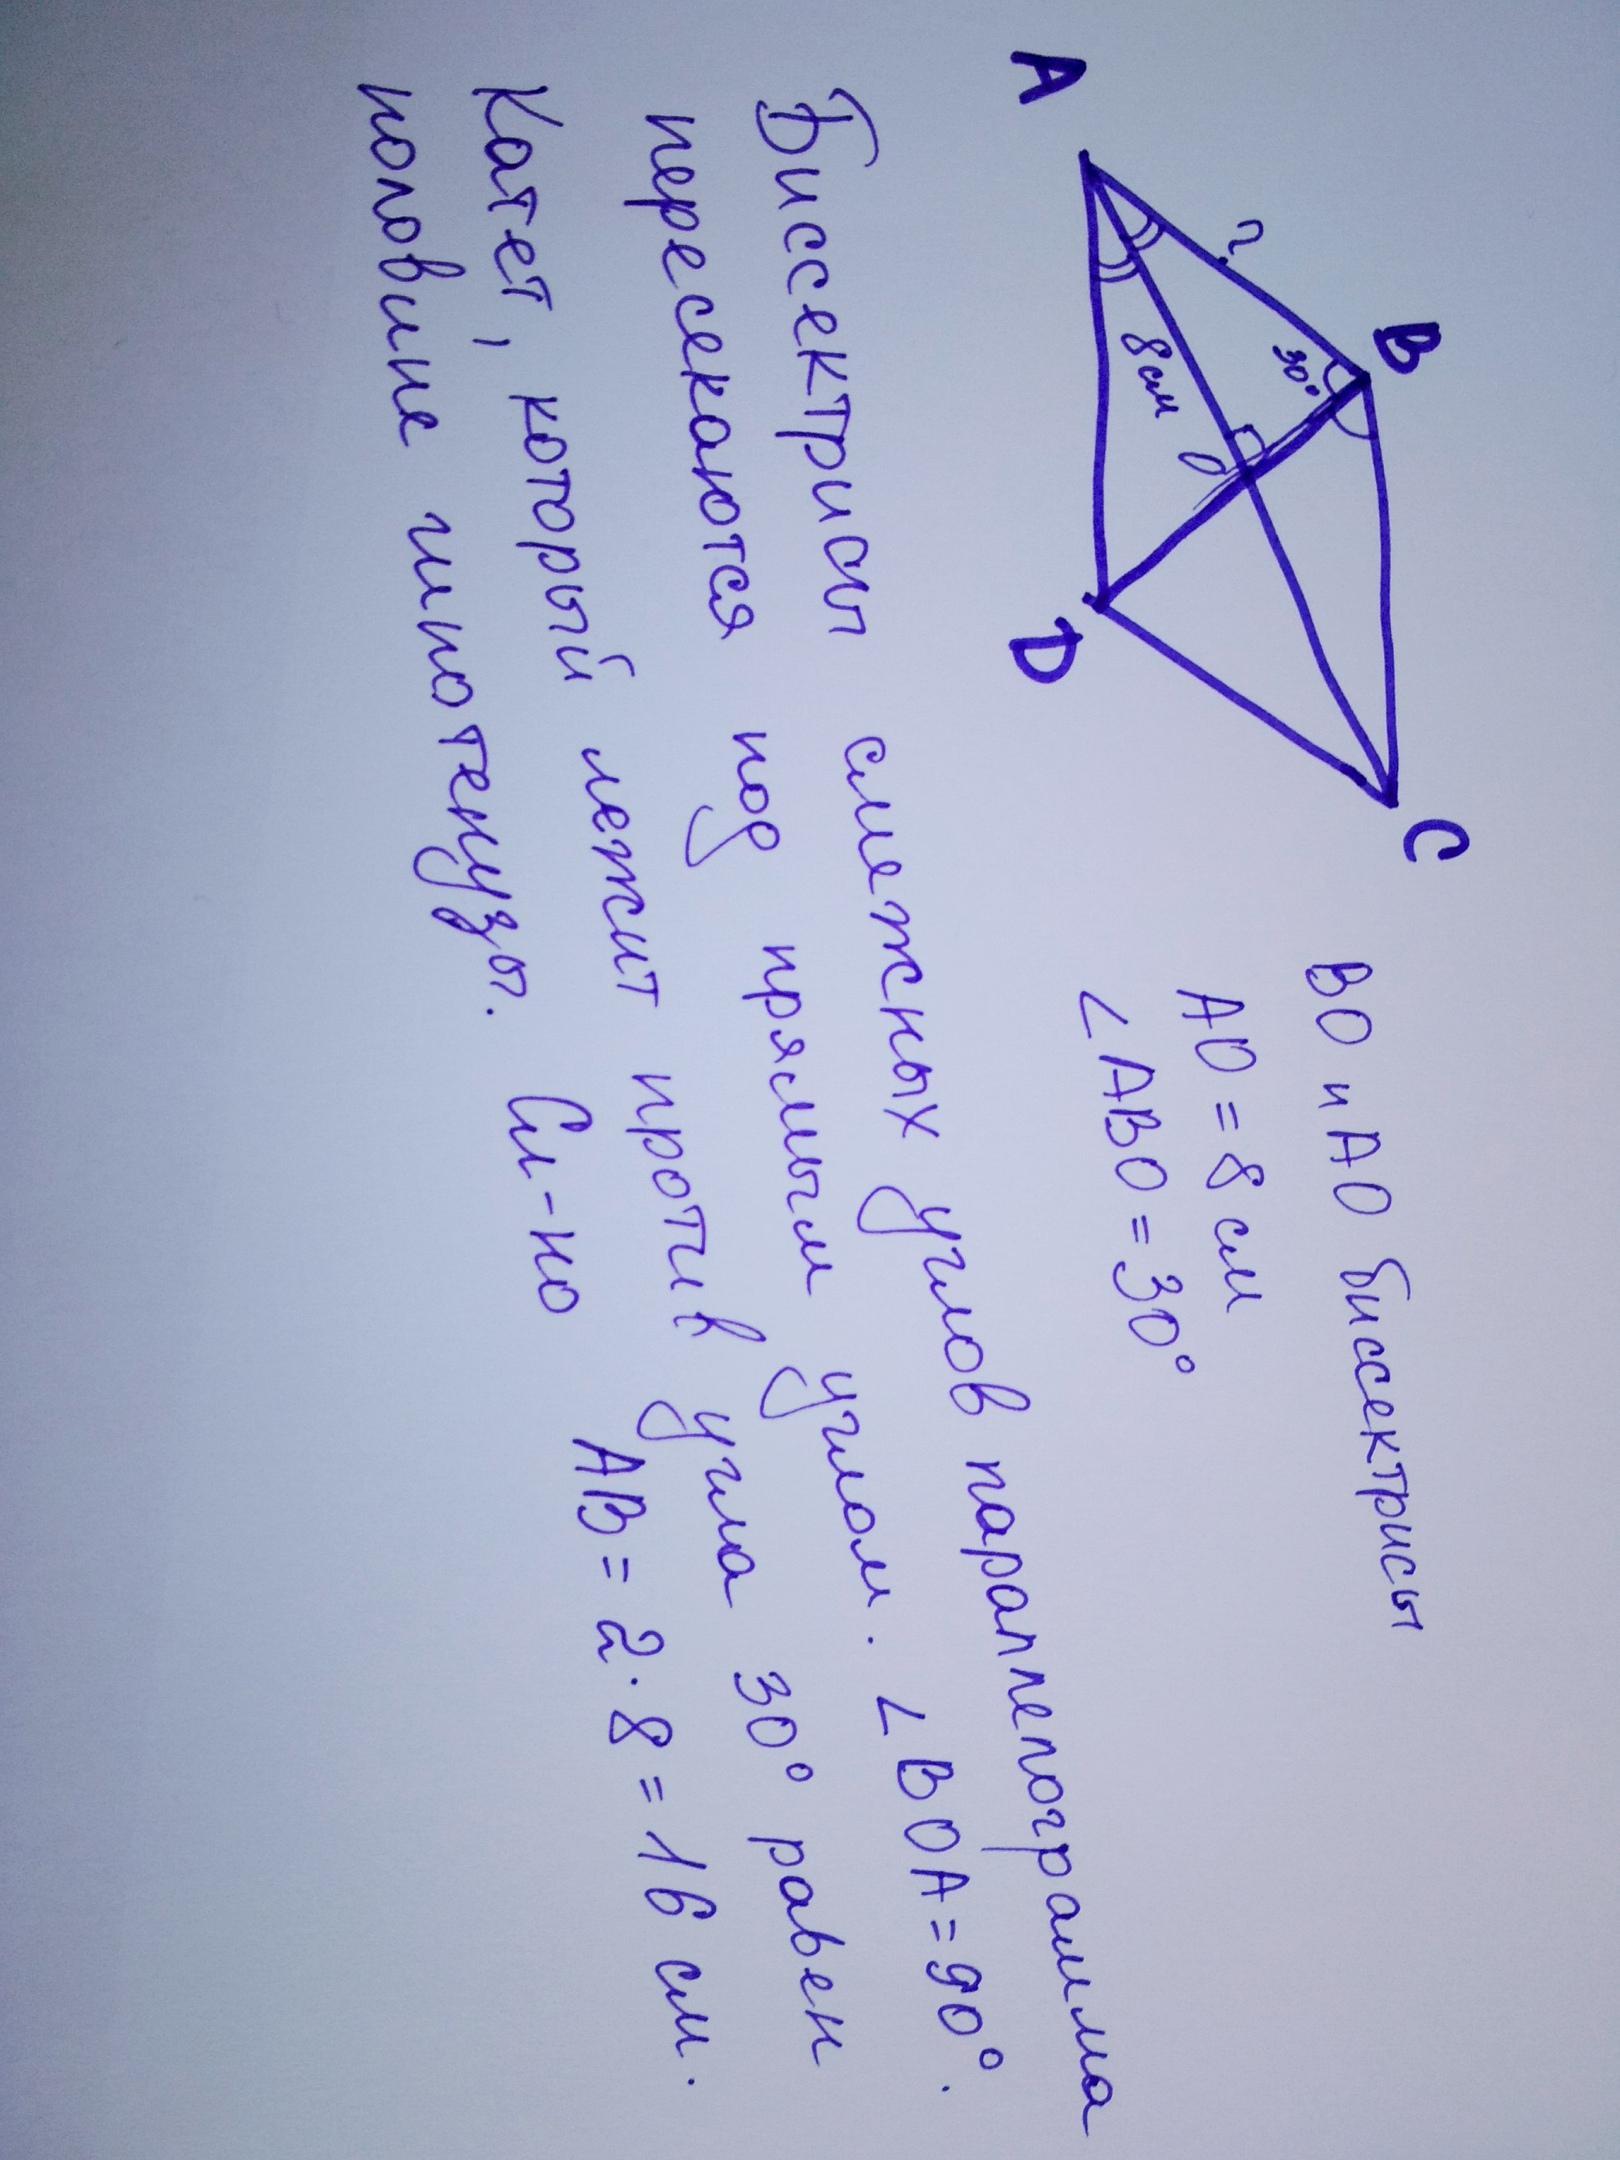 B
C
A
D
?
30°
8 см
O
BO и AO биссектрисы
AO = 8 см
∠ABO = 30°
Биссектрисы смежных углов параллелограмма
пересекаются под прямым углом. ∠BOA = 90°.
Катет, который лежит против угла 30° равен
половине гипотенузы. Сл-но AB = 2·8 = 16 см.